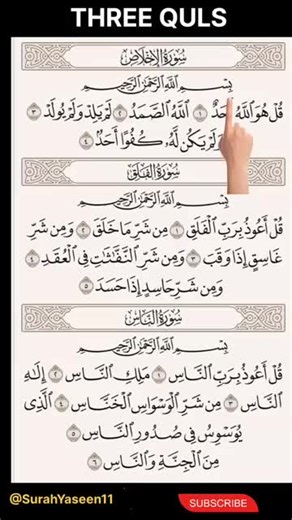 THREE QULS
سُورَةُ الإِخْلَاصِ
بِسْمِ اللَّهِ الرَّحْمَٰنِ الرَّحِيمِ
قُلْ هُوَ اللَّهُ حَدٌ ١ اللَّهُ الصَّمَدُ ٢ لَمْ يَلِدْ وَلَمْ يُولَدْ ٣
وَلَمْ يَكُن لَّهُ كُفُوًا أَحَدٌ ٤
سُورَةُ الفَلَقِ
بِسْمِ اللَّهِ الرَّحْمَٰنِ الرَّحِيمِ
قُلْ أَعُوذُ بِرَبِّ الْفَلَقِ ١ مِن شَرِّ مَا خَلَقَ ٢ وَمِن شَرِّ
غَاسِقٍ إِذَا وَقَبَ ٣ وَمِن شَرِّ النَّفَّٰثَٰتِ فِي الْعُقَدِ ٤
وَمِن شَرِّ حَاسِدٍ إِذَا حَسَدَ ٥
سُورَةُ النَّاسِ
بِسْمِ اللَّهِ الرَّحْمَٰنِ الرَّحِيمِ
قُلْ أَعُوذُ بِرَبِّ النَّاسِ ١ مَلِكِ النَّاسِ ٢ إِلَٰهِ
النَّاسِ ٣ مِن شَرِّ الْوَسْوَاسِ الْخَنَّاسِ ٤ الَّذِي
يُوَسْوِسُ فِي صُدُورِ النَّاسِ ٥
مِنَ الْجِنَّةِ وَالنَّاسِ ٦
@SurahYaseen11
SUBSCRIBE